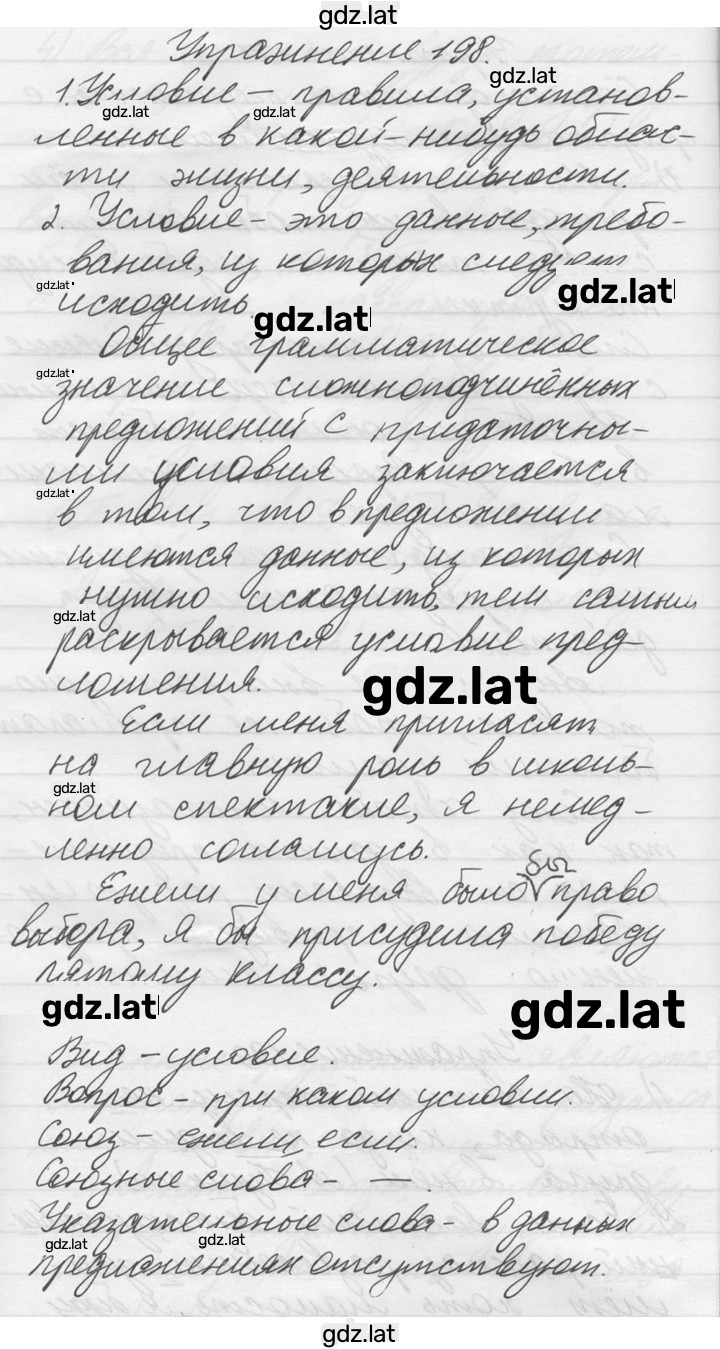 gdz.lat
Упражнение 198.
gdz.lat
1. Условие – правила, установ-
gdz.lat gdz.lat
ленные в какой-нибудь облас-
ти жизни, деятельности.
2. Условие – это данные, требо-
вания, из которых следует
gdz.lat gdz.lat
исходить.
gdz.lat
Общее грамматическое
gdz.lat
значение сложноподчинённых
предложений с придаточны-
ми условия заключается
gdz.lat
в том, что в предложении
имеются данные, из которых
нужно исходить, тем самым
gdz.lat
раскрывается условие пред-
ложения.
gdz.lat
Если меня пригласят
на главную роль в школь-
gdz.lat
ном спектакле, я немед-
ленно соглашусь.
Ежели у меня было бы право
выбора, я бы присудила победу
пятому классу.
gdz.lat gdz.lat
Вид – условие.
Вопрос – при каком условии.
Союз – ежели, если.
Союзные слова – —.
Указательные слова – в данных
gdz.lat gdz.lat
предложениях отсутствуют.
gdz.lat